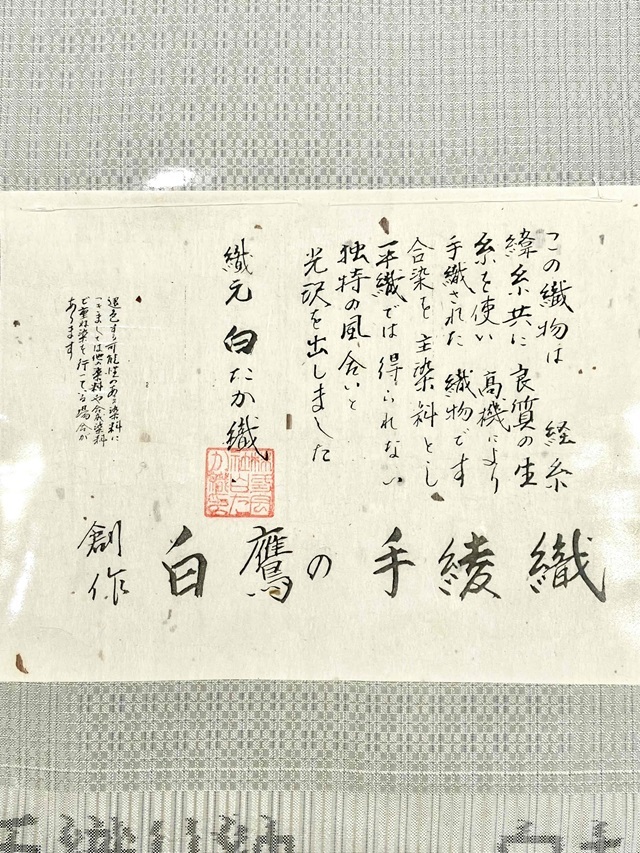 この織物は 経糸
緯糸共に良質の生
糸を使い 高機により
手織された 織物です
合染を主染料とし
平織では得られない
独特の風合いと
光沢を出しました
織元 白たか織
退色する可能性のある染料に
つきましては他の染料や合成染料
で重ね染を行っている場合が
あります
創作 白鷹の手綾織